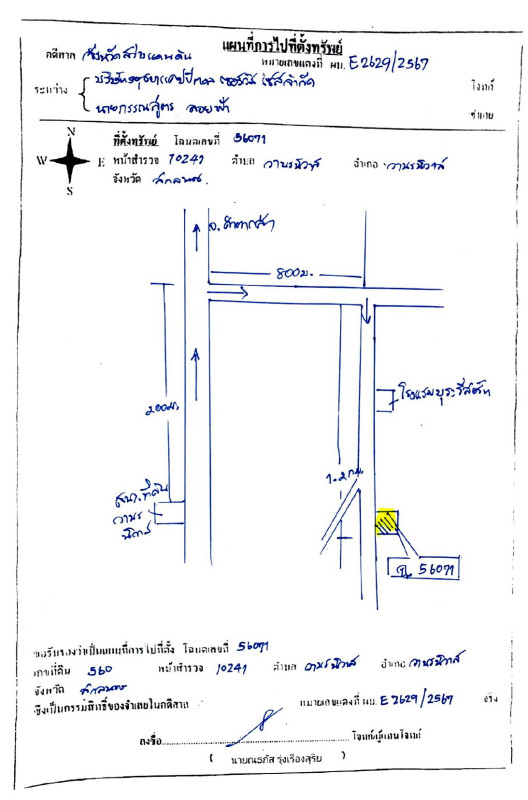 แผนที่การไปที่ตั้งทรัพย์
คดีศาล จังหวัดสว่างแดนดิน หมายเลขแดงที่ ผบ. E2629/2567
ระหว่าง บริษัท แคปปิตอล เซอร์วิสเซส จำกัด โจทก์
ลอยฟ้า จำเลย
N
W E
S
ที่ตั้งทรัพย์ โฉนดเลขที่ 56071
หน้าสำรวจ 10241 ตำบล วานรนิวาส อำเภอ วานรนิวาส
จังหวัด สกลนคร.
อ. คำตากล้า
800 ม.
200 ม.
โรงแรมบุระรีสอร์ท
1.2 กม.
สนง.ที่ดิน
วานร
นิวาส
ฉ. 56071
ขอรับรองว่าเป็นแผนที่การไปที่ตั้ง โฉนดเลขที่ 56071
เลขที่ดิน 560 หน้าสำรวจ 10241 ตำบล วานรนิวาส อำเภอ วานรนิวาส
จังหวัด สกลนคร
ซึ่งเป็นกรรมสิทธิ์ของจำเลยในคดีศาล หมายเลขแดงที่ ผบ. E2629/2567 จริง
ลงชื่อ โจทก์/ผู้แทนโจทก์
( นายณรภัส รุ่งเรืองสุริย )